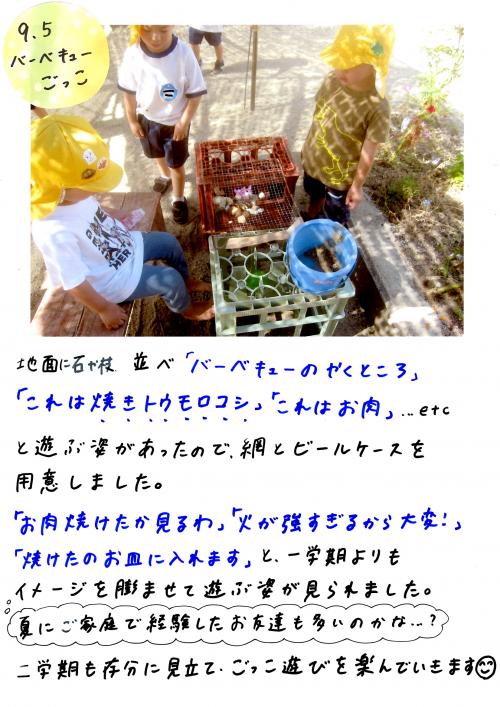 9.5
バーベキュー
ごっこ
地面に石や枝 並べ「バーベキューのやくところ」
「これは焼きトウモロコシ」「これはお肉」…etc
と遊ぶ姿があったので、網とビールケースを
用意しました。
「お肉焼けたか見るわ」「火が強すぎるから大変!」
「焼けたのお皿に入れます」と、一学期よりも
イメージを膨ませて遊ぶ姿が見られました。
夏にご家庭で経験したお友達も多いのかな…?
二学期も存分に見立て、ごっこ遊びを楽んでいきます